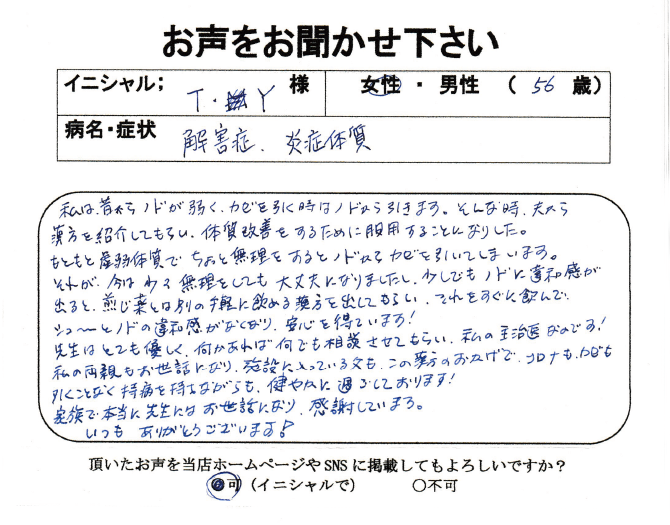 お声をお聞かせ下さい
イニシャル; T・Y 様 女性・男性 (56歳)
病名・症状 解害症、炎症体質
私は、昔からノドが弱く、カゼを引く時はノドから引きます。そんな時、夫から
漢方を紹介してもらい、体質改善をするために服用することになりました。
もともと虚弱体質で ちょっと無理をするとノドからカゼを引いてしまいます。
それが、今は 無理をしても大丈夫になりましたし、少しでもノドに違和感が
出ると、煎じ薬とは別の手軽に飲める漢方を出してもらい、それをすぐに飲んで、
シュ〜とノドの違和感がなくなり、安心を得ています!
先生はとても優しく、何かあれば何でも相談させてもらい、私の主治医なのです!
私の両親もお世話になり、施設に入っている父も、この漢方のおかげで、コロナもカゼも
引くことなく持病を持ちながらも、健やかに過ごしております!
家族で本当に先生にはお世話になり、感謝しています。
いつも ありがとうございます!
頂いたお声を当店ホームページやSNSに掲載してもよろしいですか?
●可 (イニシャルで) ○不可